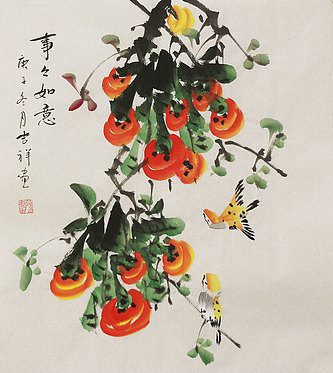 事々如意
庚子冬月吉祥画